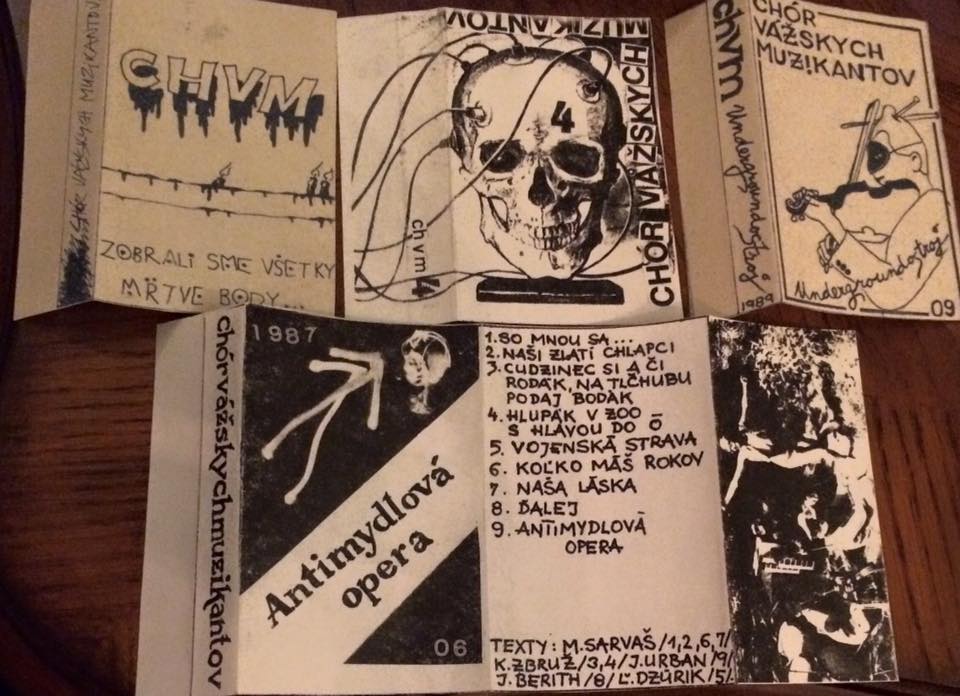 CHÓR VÁŽSKYCH MUZIKANTOV
CHVM
ZOBRALI SME VŠETKY
MŔTVE BODY...
CHÓR VÁŽSKYCH
MUZIKANTOV
4
chvm 4
chvm Undergroundostroj
1989
CHÓR
VÁŽSKYCH
MUZIKANTOV
Undergroundostroj
09
chórvážskychmuzikantov
1987
Antimydlová
opera
06
1. SO MNOU SA...
2. NAŠI ZLATÍ CHLAPCI
3. CUDZINEC SI A ČI
RODÁK, NA TLČHUBU
PODAJ BODÁK
4. HLUPÁK V ZOO
S HLAVOU DO Ō
5. VOJENSKÁ STRAVA
6. KOĽKO MÁŠ ROKOV
7. NAŠA LÁSKA
8. ĎALEJ
9. ANTIMYDLOVÁ
OPERA
TEXTY: M.SARVAŠ/1,2,6,7/
K.ZBRUŽ/3,4/J.URBAN/9/
J.BERITH/8/Ľ.DZÚRIK/5/.